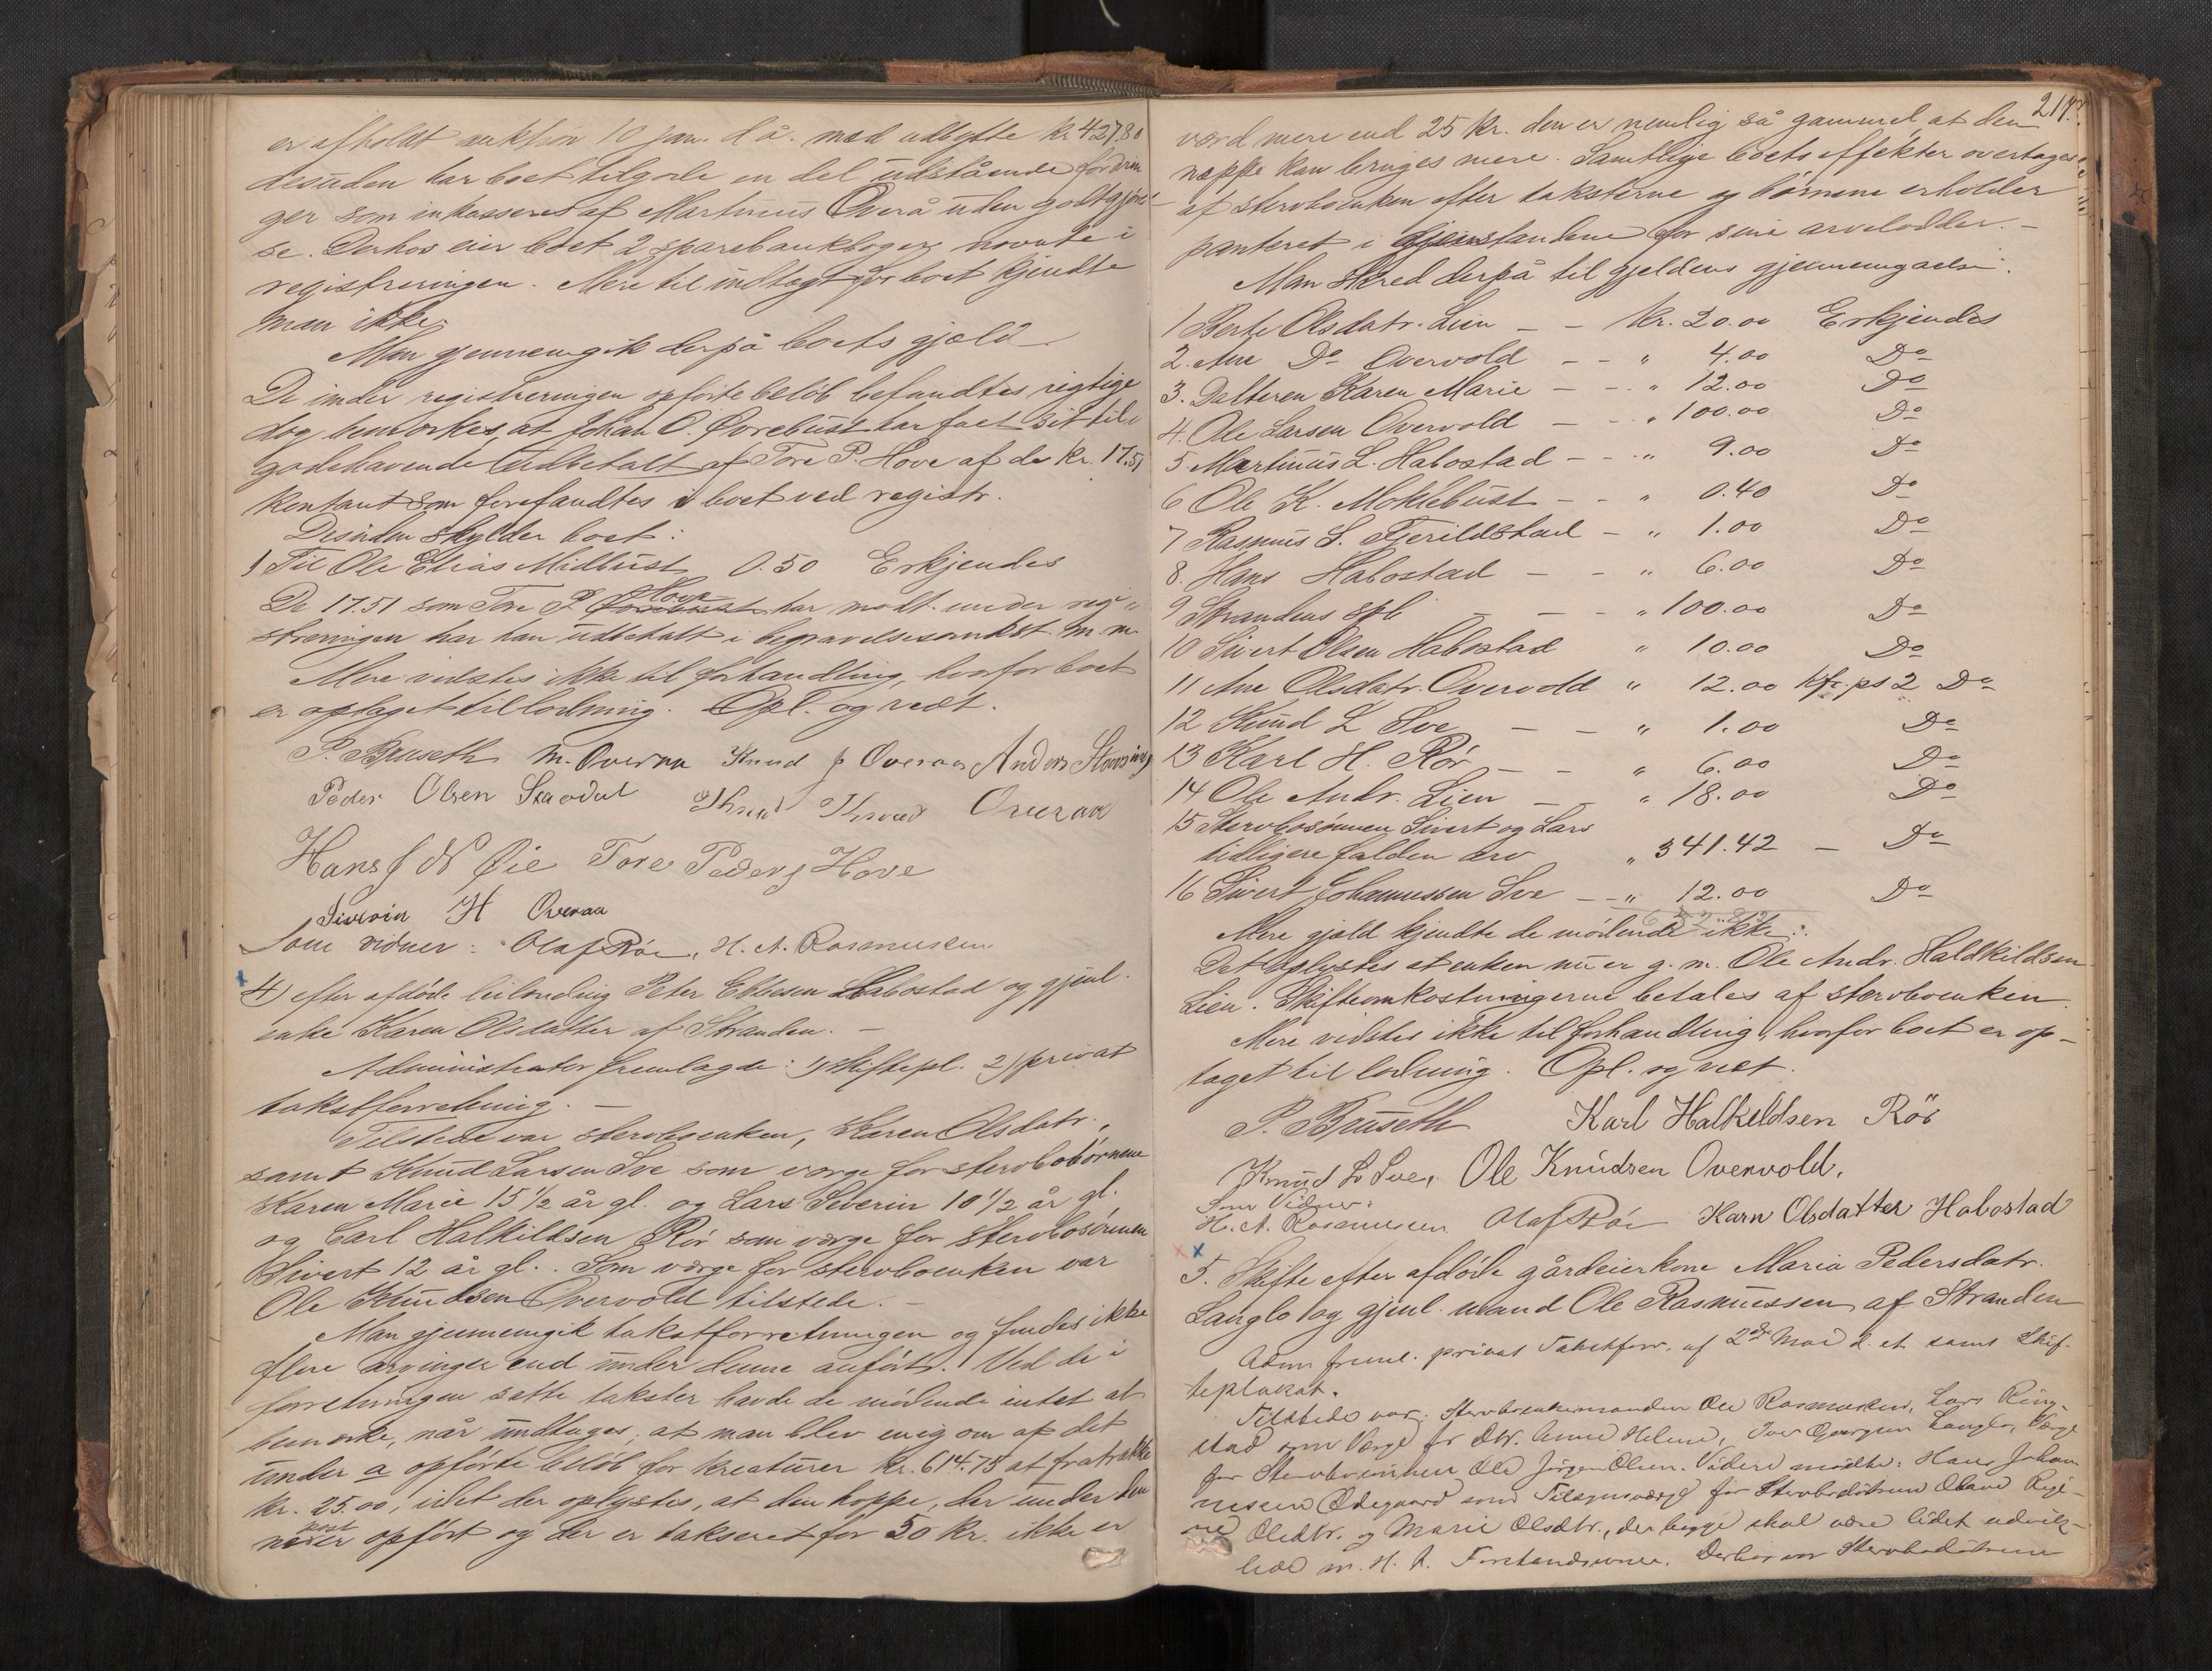 er afholdt auktion 10 jan. d å. med udbytte kr. 427.80
desuden har boet tilgode en del udstående fordrin
ger som inkasseres af Martinus Overå uden godtgjørel-
se. Derhos eier boet 2 sparebankbøger nævnte i
registreringen. Mere til indtægt for boet kjendte
man ikke.
Man gjennemgik derpå boets gjæld.
De under registreringen opførte beløb befandtes rigtige
dog bemærkes, at Johan O. Øvrebust har faaet sit til-
godehavende udbetalt af Tore P. Hove af de kr. 17.51
kontant som forefandtes i boet ved registr.
Desuden skylder boet:
1 Til Ole Elias Midbust 0.50 Erkjendes
De 17.51 som Tore P. Hove har modt. under regi-
streringen har han udbetalt i begravelsesomkost. m.m.
Mere vidstes ikke til forhandling, hvorfor boet
er optaget til lodning. Opl. og vedt.
P. Bruseth M. Overaa Knud P Overaa Anders
Peder Olsen Overaa
Hans J N Øie Tore Peders Hove
Siverin H Overaa
Som vidner: Olaf Röe, H. A. Rasmussen
4) efter afdøde leilænding Peter Ellevsen Habostad og gjenl.
enke Karen Olsdatter af Stranden. –
Administrator fremlagde: 1) skiftepl. 2) privat
takstforretning. –
Tilstede var stervboenken, Karen Olsdatr.,
samt Knud Larsen Sve som værge for stervbobørnene
Karen Marie 15 1/2 år gl. og Lars Severin 10 1/2 år gl.
og Carl Halkildsen Rør som værge for stervbosønnen
Sivert 12 år gl. Som værge for stervboenken var
Ole Knudsen Overvold tilstede. –
Man gjennemgik takstforretningen og fandtes ikke
flere arvinger end under denne anført. Ved de i
forretningen satte takster havde de mødende intet at
bemærke, når undtages, at man blev enig om af det
under a opførte beløb for kreaturer kr. 614.75 at fratrække
kr. 25.00, idet der oplystes, at den hoppe, der under den
post er opført og der er takseret for 50 kr. ikke er
217.
værd mere end 25 kr. den er nemlig så gammel, at den
neppe kan bruges mere. Samtlige boets effekter overtages
af stervboenken efter taksterne og børnene erholder
panteret i gjenstandene for sine arvelodder. –
Man skred derpå til gjeldens gjennemgaaelse.
1 Berte Olsdatr. Lien – – kr. 20.00 Erkjendes
2. Ane Do Overvold – – " 4.00 Do
3. Datteren Karen Marie – – " 12.00 Do
4. Ole Larsen Overvold – – " 100.00 Do
5. Martinus L. Habostad – – " 9.00 Do
6 Ole K. Moklebust – – " 0.40 Do
7 Rasmus S. Fjerildstad – " 1.00 Do
8. Hans Habostad – – " 6.00 Do
9 Strandens spb – – – " 100.00 Do
10 Sivert Olsen Habostad " 10.00 Do
11 Ane Olsdatr. Overvold " 12.00 kfr. ps 2 Do
12 Knud L Sve – – " 1.00 Do
13 Karl H. Rör – – " 6.00 Do
14 Ole Andr. Lien – – " 18.00 Do
15 Stervbosønnen Sivert og Lars
tidligere falden arv " 341.42 – Do
16 Sivert Johannessen Sve – – " 12.00 Do
Mere gjæld kjendte de mødende ikke.
Det oplystes at enken nu er g. m. Ole Andr. Haldkildsen
Lien. Skifteomkostningerne betales af stervboenken.
Mere vidstes ikke til forhandling, hvorfor boet er op-
taget til lodning. Opl. og vedt.
P. Bruseth Karl Halkeldsen Rör
Knud L Sve, Ole Knudsen Overvold,
Som Vidner:
H. A. Rasmussen Olaf Röe Karn Olsdatter Habostad
5. Skifte efter afdøde gårdeierkone Maria Pedersdatr.
Langlo og gjenl. mand Ole Rasmussen af Stranden
Adm. freml. privat Takstforr. af 2de Mai d. A. samt Skif-
teplakat.
Tilstede var: Stervboenkemanden Ole Rasmussen, Lars Ring-
stad som Værge for Dtr. Anne Helene, Iver Langlo, Værge
for Stervbosønnen Ole Jørgen Olsen. Videre mødte: Hans Johan
nessen Ødegaard som Tilsynsværge for Stervbodøtrene Olave Regi-
ne Olsdtr. og Marie Olsdtr., der begge skal være lidet udvik-
lede m. H. t. Forstandsevner. Derhos var Stervbodøtrene